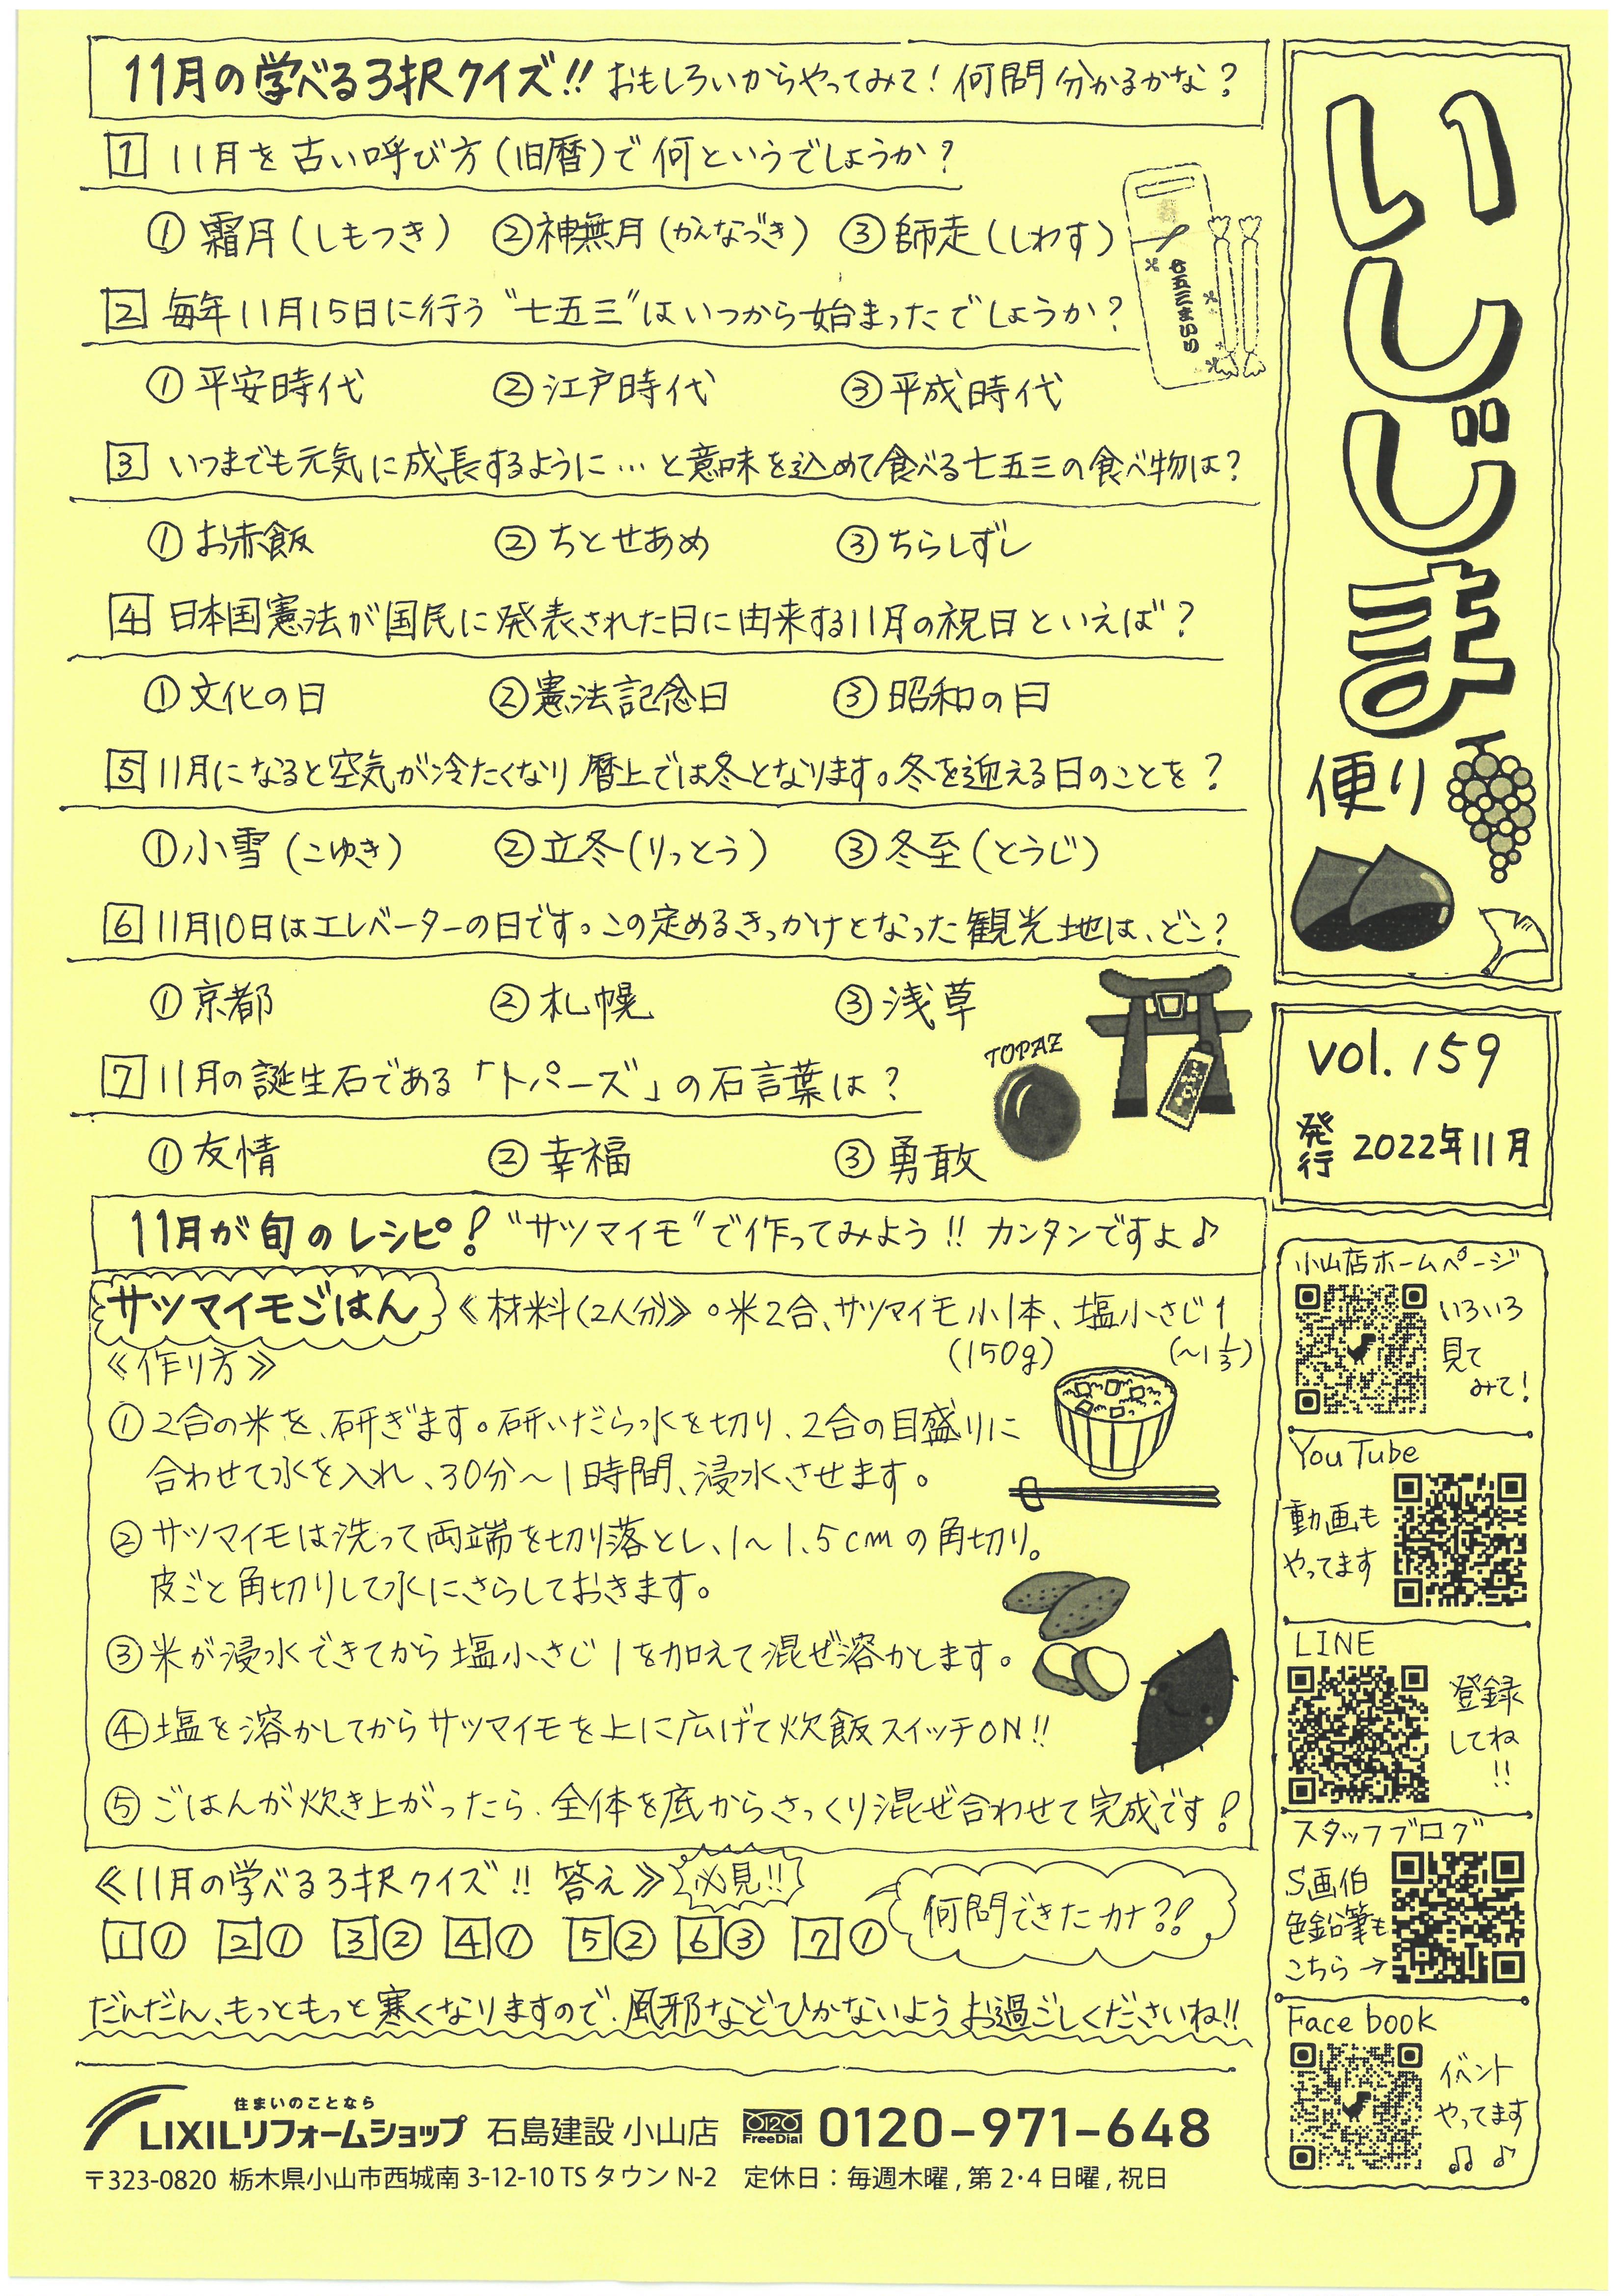 11月の学べる3択クイズ!! おもしろいからやってみて! 何問分かるかな?
1 11月を古い呼び方(旧暦)で何というでしょうか?
① 霜月(しもつき) ②神無月(かんなづき) ③師走(しわす)
2 毎年11月15日に行う"七五三"はいつから始まったでしょうか?
七五三まいり
① 平安時代 ②江戸時代 ③平成時代
3 いつまでも元気に成長するように…と意味を込めて食べる七五三の食べ物は?
① お赤飯 ② ちとせあめ ③ちらしずし
4 日本国憲法が国民に発表された日に由来する11月の祝日といえば?
① 文化の日 ②憲法記念日 ③昭和の日
5 11月になると空気が冷たくなり暦上では冬となります。冬を迎える日のことを?
①小雪(こゆき) ②立冬(りっとう) ③冬至(とうじ)
6 11月10日はエレベーターの日です。この定めるきっかけとなった観光地は、どこ?
① 京都 ② 札幌 ③ 浅草
7 11月の誕生石である「トパーズ」の石言葉は?
TOPAZ
① 友情 ② 幸福 ③ 勇敢
11月が旬のレシピ! "サツマイモ"で作ってみよう!! カンタンですよ♪
サツマイモごはん 《材料(2人分)》○米2合、サツマイモ小1本、塩小さじ1
(150g) (~1 1/3)
《作り方》
①2合の米を、研ぎます。研いだら水を切り、2合の目盛りに
合わせて水を入れ、30分~1時間、浸水させます。
②サツマイモは洗って両端を切り落とし、1~1.5cmの角切り。
皮ごと角切りして水にさらしておきます。
③米が浸水できてから塩小さじ1を加えて混ぜ溶かします。
④塩を溶かしてからサツマイモを上に広げて炊飯スイッチON!!
⑤ごはんが炊き上がったら、全体を底からさっくり混ぜ合わせて完成です!
《11月の学べる3択クイズ!! 答え》必見!!
1① 2① 3② 4① 5② 6③ 7①
何問できたカナ?!
だんだん、もっともっと寒くなりますので、風邪などひかないようお過ごしくださいね!!
住まいのことなら
LIXILリフォームショップ 石島建設 小山店 0120 FreeDial 0120-971-648
〒323-0820 栃木県小山市西城南 3-12-10 TS タウン N-2 定休日:毎週木曜,第2・4日曜,祝日
いしじま
便り
vol.159
発行 2022年11月
小山店ホームページ
いろいろ
見て
みて!
YouTube
動画も
やってます
LINE
登録
してね
!!
スタッフブログ
S画伯
色鉛筆も
こちら→
Face book
イベント
やってます
♫ ♪